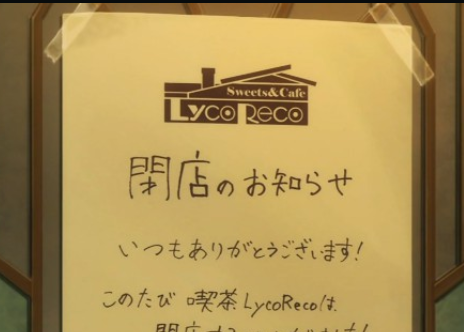 Sweets&Cafe
LycoReco
閉店のお知らせ
いつもありがとうございます!
このたび 喫茶LycoRecoは、
閉店する